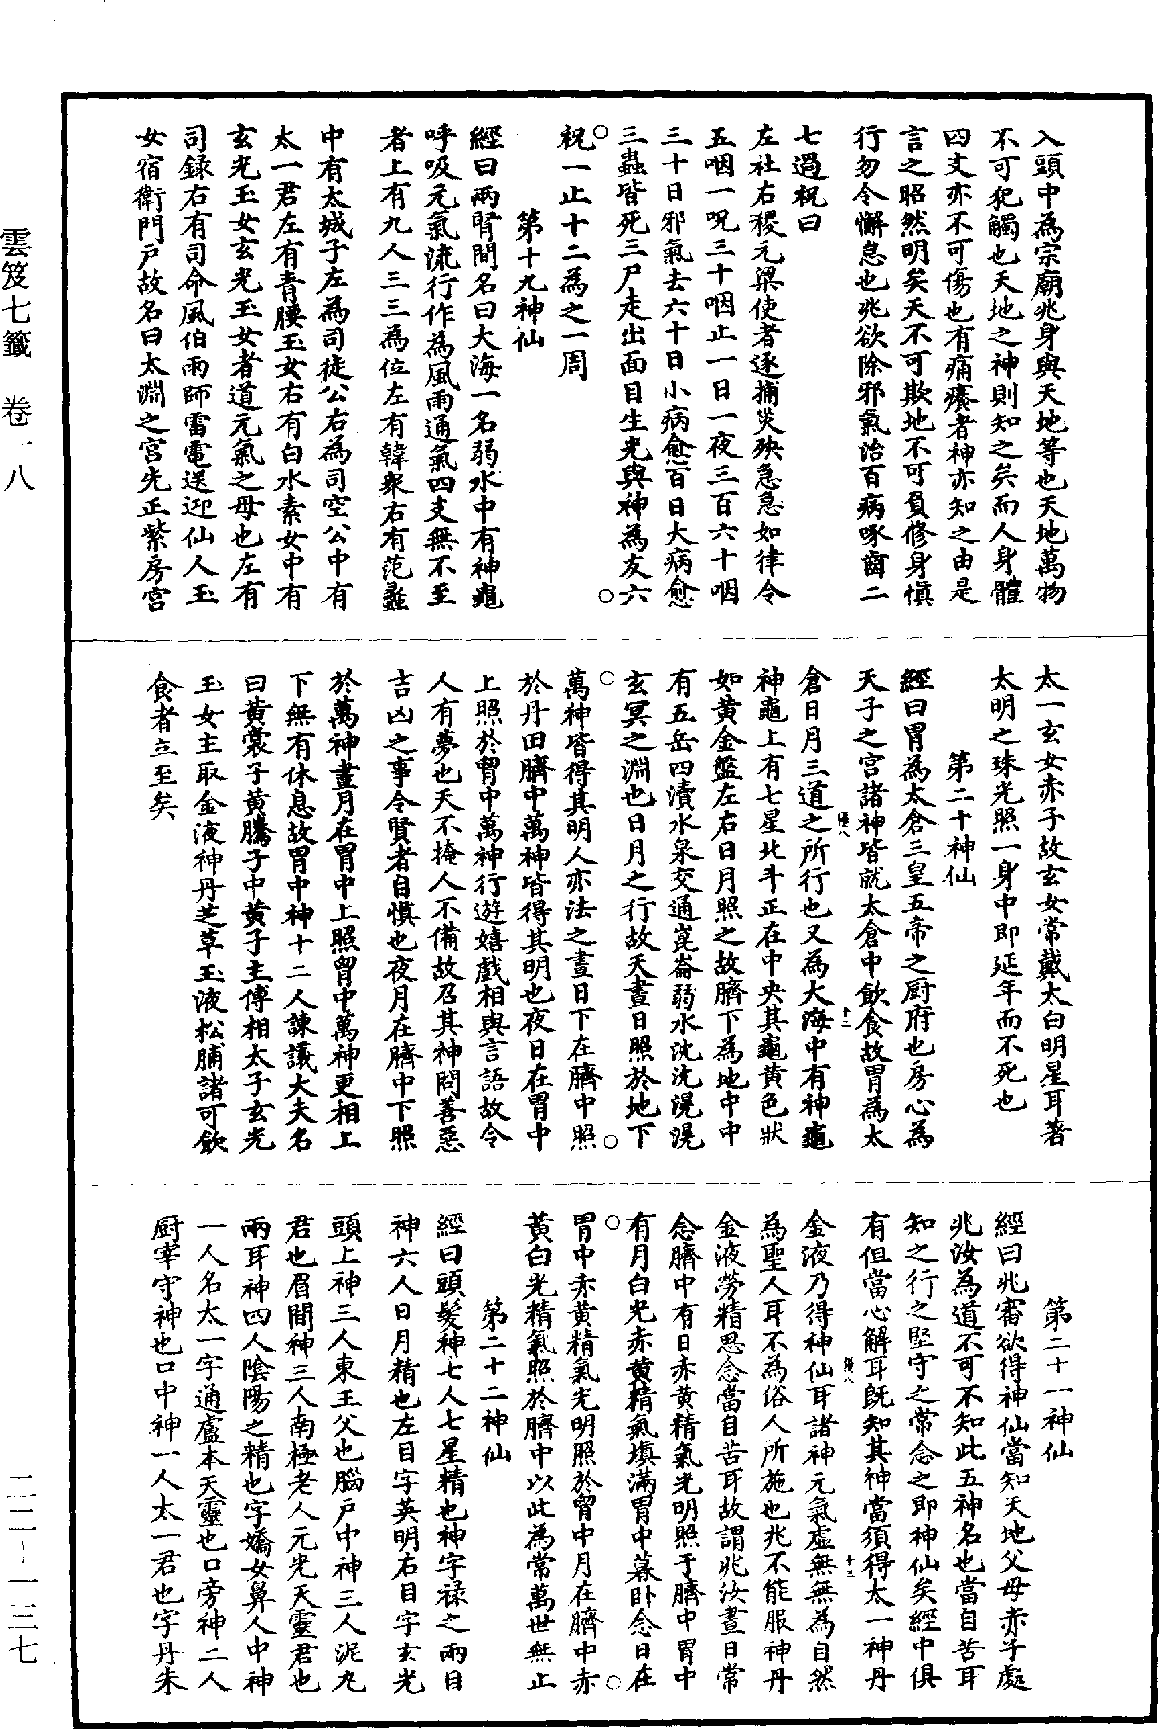 入頭中為宗廟兆身與天地等也天地萬物
不可犯觸也天地之神則知之矣而人身體
四支亦不可傷也有痛癢者神亦知之由是
言之昭然明矣天不可欺地不可負修身慎
行勿令懈怠也兆欲除邪氣治百病啄齒二
七過祝曰
左社右稷元梁使者逐捕災殃急急如律令
五咽一呪三十咽止一日一夜三百六十咽
三十日邪氣去六十日小病愈百日大病愈
三蟲皆死三尸走出面目生光與神為友六
祝一止十二為之一周
第十九神仙
經曰兩腎間名曰大海一名弱水中有神龜
呼吸元氣流行作為風雨通氣四支無不至
者上有九人三三為位左有韓衆右有范蠡
中有太城子左為司徒公右為司空公中有
太一君左有青腰玉女右有白水素女中有
玄光玉女玄光玉女者道元氣之母也左有
司錄右有司命風伯雨師雷電送迎仙人玉
女宿衛門戸故名曰太淵之宮先正紫房宮
太一玄女赤子故玄女常戴太白明星耳著
太明之珠光照一身中即延年而不死也
第二十神仙
經曰胃為太倉三皇五帝之厨府也房心為
天子之宮諸神皆就太倉中飲食故胃為太
倉日月三道之所行也又為大海中有神龜
神龜上有七星北斗正在中央其龜黄色狀
如黄金盤左右日月照之故臍下為地中中
有五岳四瀆水泉交通崑崙弱水沈沈滉滉
玄冥之淵也日月之行故天晝日照於地下
萬神皆得其明人亦法之晝日下在臍中照
於丹田臍中萬神皆得其明也夜日在胃中
上照於胷中萬神行遊嬉戲相與言語故令
人有夢也天不掩人不備故召其神問善惡
吉凶之事令賢者自慎也夜月在臍中下照
於萬神晝月在胃中上照胷中萬神更相上
下無有休息故胃中神十二人諫議大夫名
曰黄裳子黄騰子中黄子主傅相太子玄光
玉女主取金液神丹芝草玉液松脯諸可飲
食者立至矣
第二十一神仙
經曰兆審欲得神仙當知天地父母赤子處
兆汝為道不可不知此五神名也當自苦耳
知之行之堅守之常念之即神仙矣經中俱
有但當心解耳既知其神當須得太一神丹
金液乃得神仙耳諸神元氣虛無無為自然
為聖人耳不為俗人所施也兆不能服神丹
金液勞精思念當自苦耳故謂兆汝晝日常
念臍中有日赤黄精氣光明照于臍中胃中
有月白光赤黄精氣填滿胃中暮卧念日在
胃中赤黄精氣光明照於胷中月在臍中赤
黄白光精氣照於臍中以此為常萬世無止
第二十二神仙
經曰頭髮神七人七星精也神字禄之兩目
神六人日月精也左目字英明右目字玄光
頭上神三人東王父也腦戸中神三人泥丸
君也眉間神三人南極老人元光天靈君也
兩耳神四人陰陽之精也字嬌女鼻人中神
一人名太一字通盧本天靈也口旁神二人
厨宰守神也口中神一人太一君也字丹朱
雲笈七籤　卷一八
二二-一三七